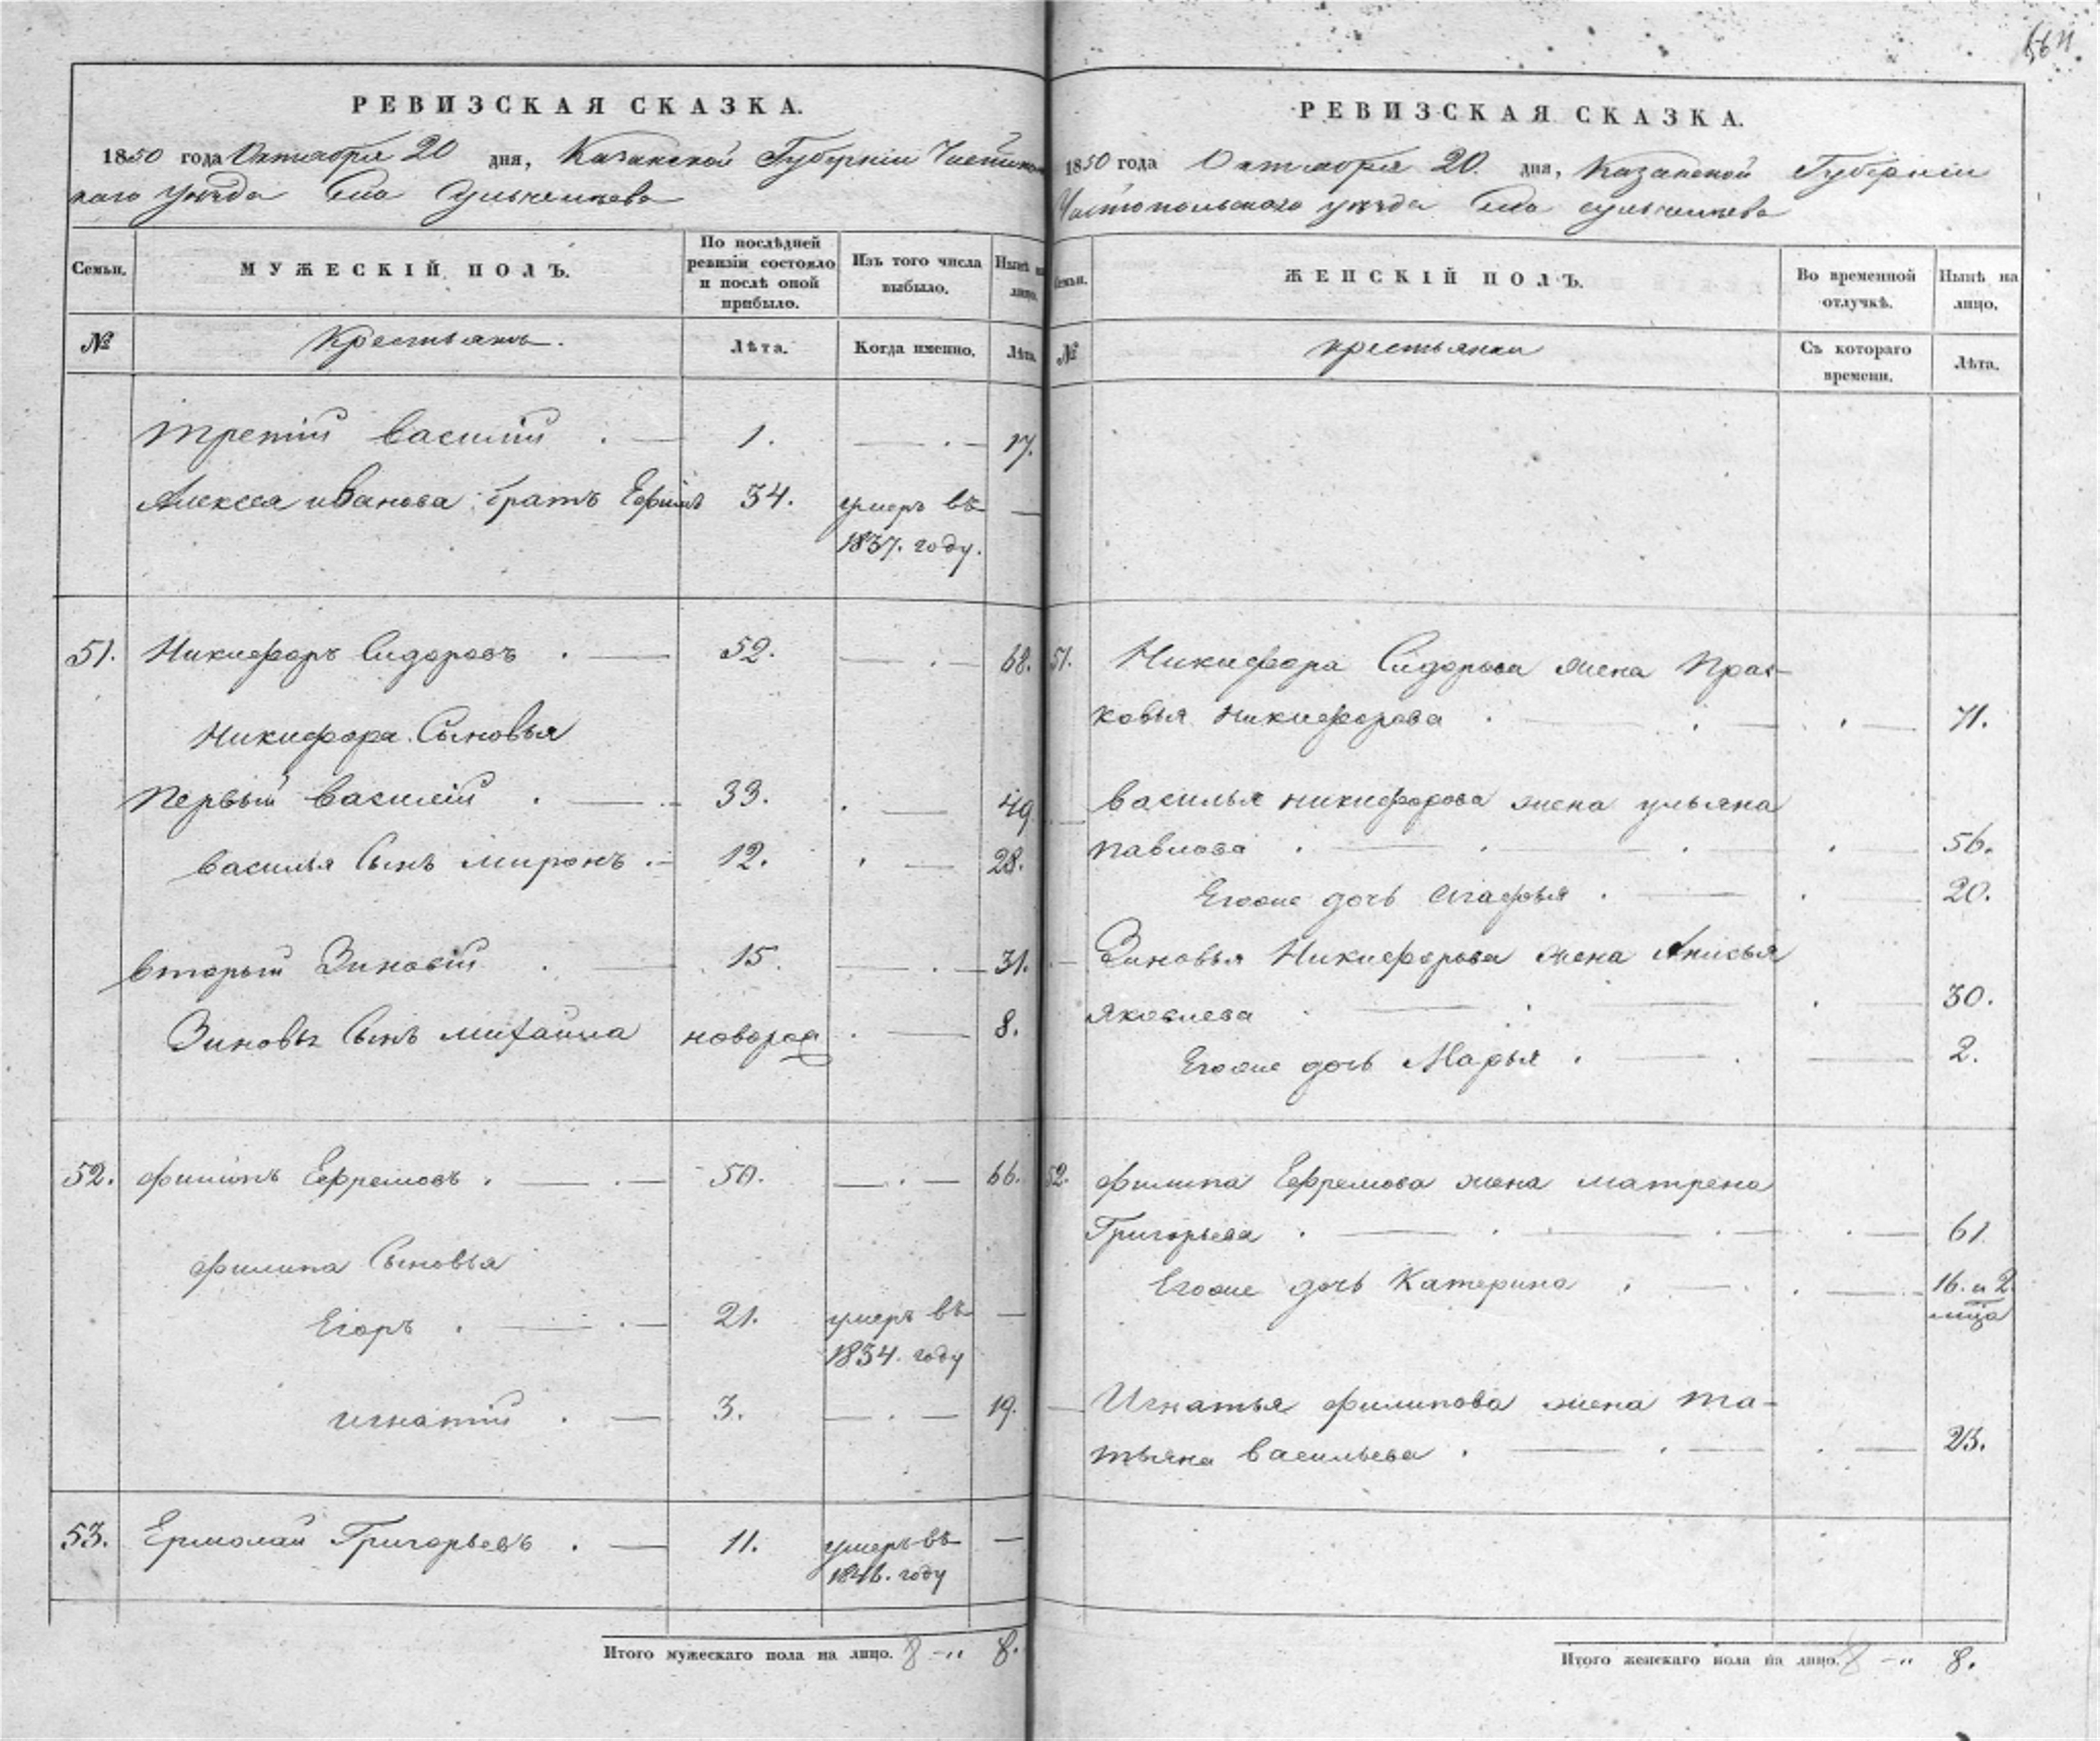 РЕВИЗСКАЯ СКАЗКА.
1850 года Октября 20 дня, Казанской Губерніи Чистопол
скаго уѣзда Села
Семьи.
МУЖЕСКІЙ ПОЛЪ.
По послѣдней
ревизіи состояло
и послѣ оной
прибыло.
Изъ того числа
выбыло.
Нынѣ на
лицо.
№
Крестьянъ.
Лѣта.
Когда именно.
Лѣта.
третій василій . — 1. — . — 17.
Алексея иванова братъ Ефимъ 34. умеръ въ —
1837. году.
51. Никифоръ Сидоровъ . — 52. — . — 68.
Никифора Сыновья
первый василій . — 33. . — 49
василья Сынъ миронъ . — 12. . — 28.
вторый Зиновій . — 15. — . — 31.
Зиновья Сынъ михайла новород . — 8.
52. филипъ Ефремовъ . — . — 50. — . — 66.
филипа Сыновья
Егоръ . — . — 21. умеръ въ —
1834. году
игнатій . — 3. — . — 19.
53. Ермолай Григорьевъ . — 11. умеръ въ —
1846. году
Итого мужескаго пола на лицо. 8 -„ 8.
РЕВИЗСКАЯ СКАЗКА.
1850 года Октября 20. дня, Казанской Губерніи
Чистопольскаго уѣзда Села
Семьи.
ЖЕНСКІЙ ПОЛЪ.
Во временной
отлучкѣ.
Нынѣ на
лицо.
№
крестьянки
Съ котораго
времени.
Лѣта.
51. Никифора Сидорова жена Прас-
ковья никифорова . — . — . — 71.
василья никифорова жена ульяна
павлова . — . — . — . — 56.
Егоже дочь агафья . — . — 20.
Зиновья Никифорова жена Анисья
яковлева . — . — . — 30.
Егоже дочь Марья . — . — 2.
52. филипа Ефремова жена матрена
Григорьева . — . — . — . — 61
Егоже дочь Катерина . — . . — 16. и 2.
мца
Игнатья филипова жена та-
тьяна васильева . — . — . — 23.
Итого женскаго пола на лицо. 8 -„ 8.